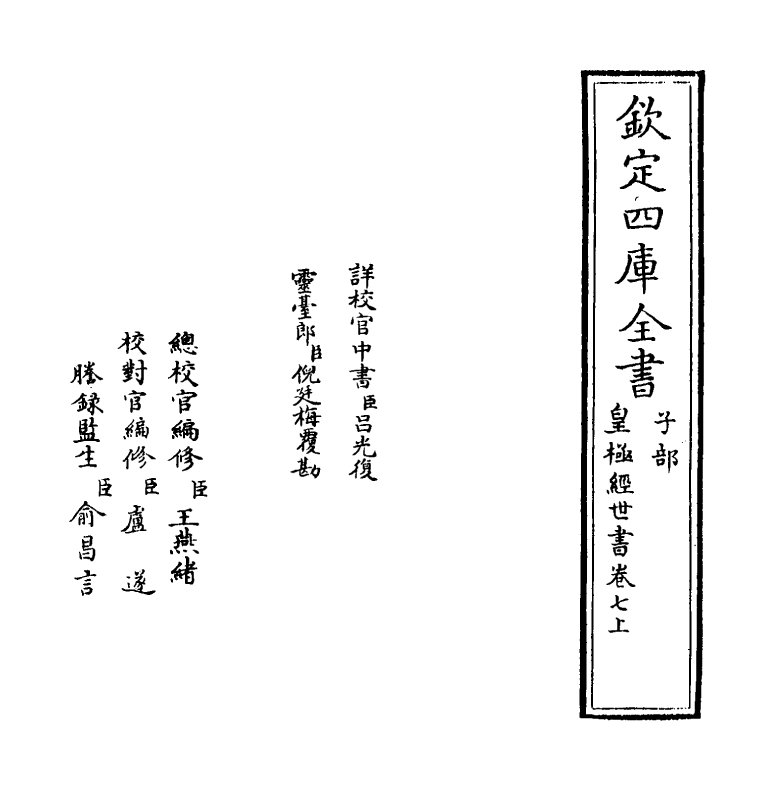 欽定四庫全書
子部
皇極經世書卷七上
詳校官中書臣呂光復
靈臺郎臣倪廷梅覆勘
總校官編修臣王燕緒
校對官編修臣盧遂
謄錄監生臣俞昌言